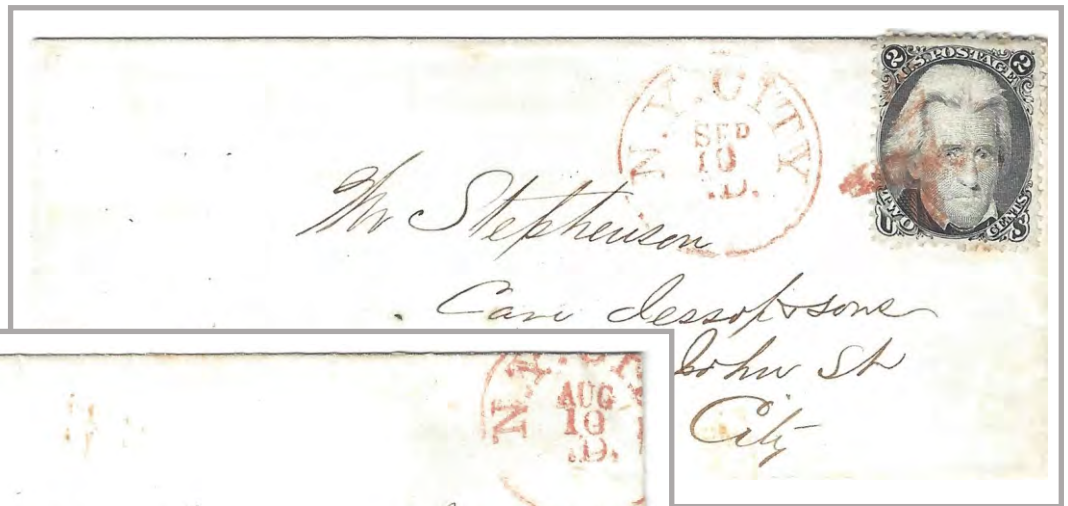 N.Y. CITY
SEP
10
.D.
2 U.S. POSTAGE 2
TWO CENTS
U S
Mr Stephenson
Care Jessop & Sons
John St
City
N.Y.
AUG
18
.D.